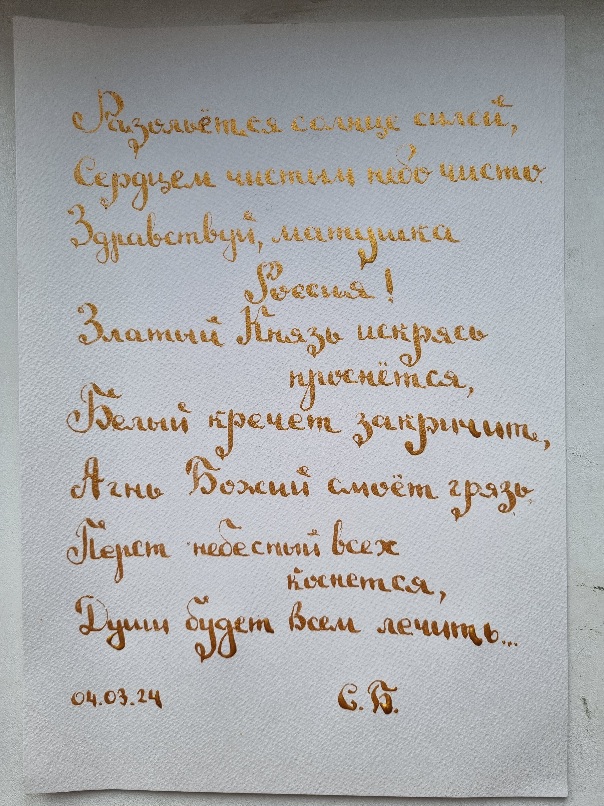 Разольётся солнце силой,
Сердцем чистим небо чисто.
Здравствуй, матушка
Россия!
Златый Князь искрясь
проснётся,
Белый кречет закричит,
Агнь Божий смоёт грязь,
Перст небесный всех
коснется,
Души будет всем лечить...
04.03.24 С.Б.